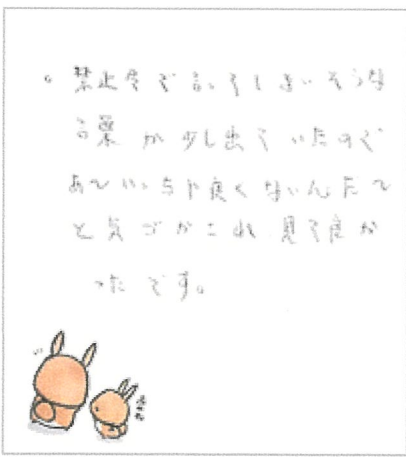 。禁止令で言ってしまいそうな
言葉が少し出ていたので
良くないんだ
と気づかされ見て良か
ったです。